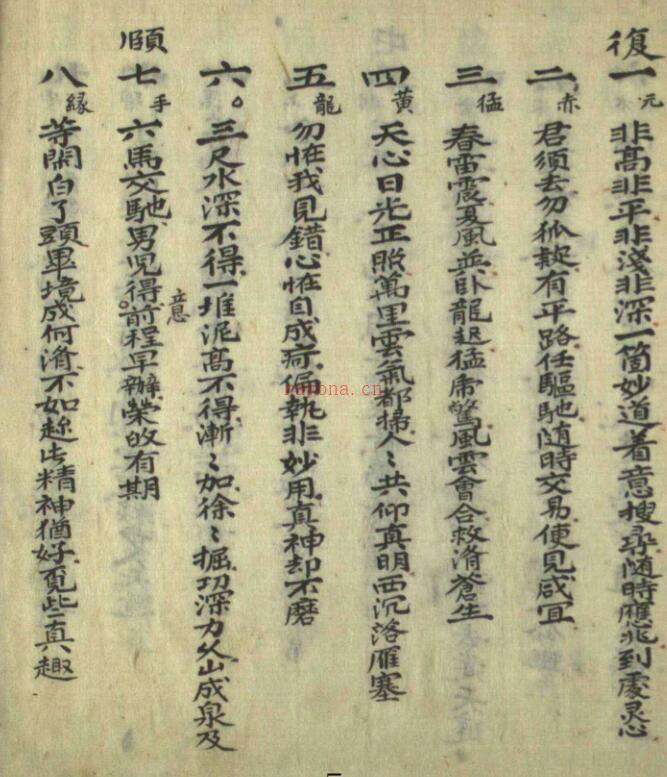 復一元 非高非平非淺非深一箇妙道着意搜尋随時應兆到處灵心
二赤 君須去勿狐疑有平路任驅馳随時交易使見咸宜
三猛 春雷震夏風並卧龍起猛虎驚風雲會合救済蒼生
四黄 天心日光正照萬里雲氣都掃人〻共仰真明西沉落雁塞
五龍 勿怪我見錯心怪自成疴偏執非妙用真神却不磨
六。 三尺水深不得一堆泥高不得漸〻加徐〻掘功深力久山成泉及
頤七手 六馬交馳男児得意前程早辦榮故有期
八緣 等閑白了頭畢境成何済不如趂此精神猶好覓些真趣
yayona.cn